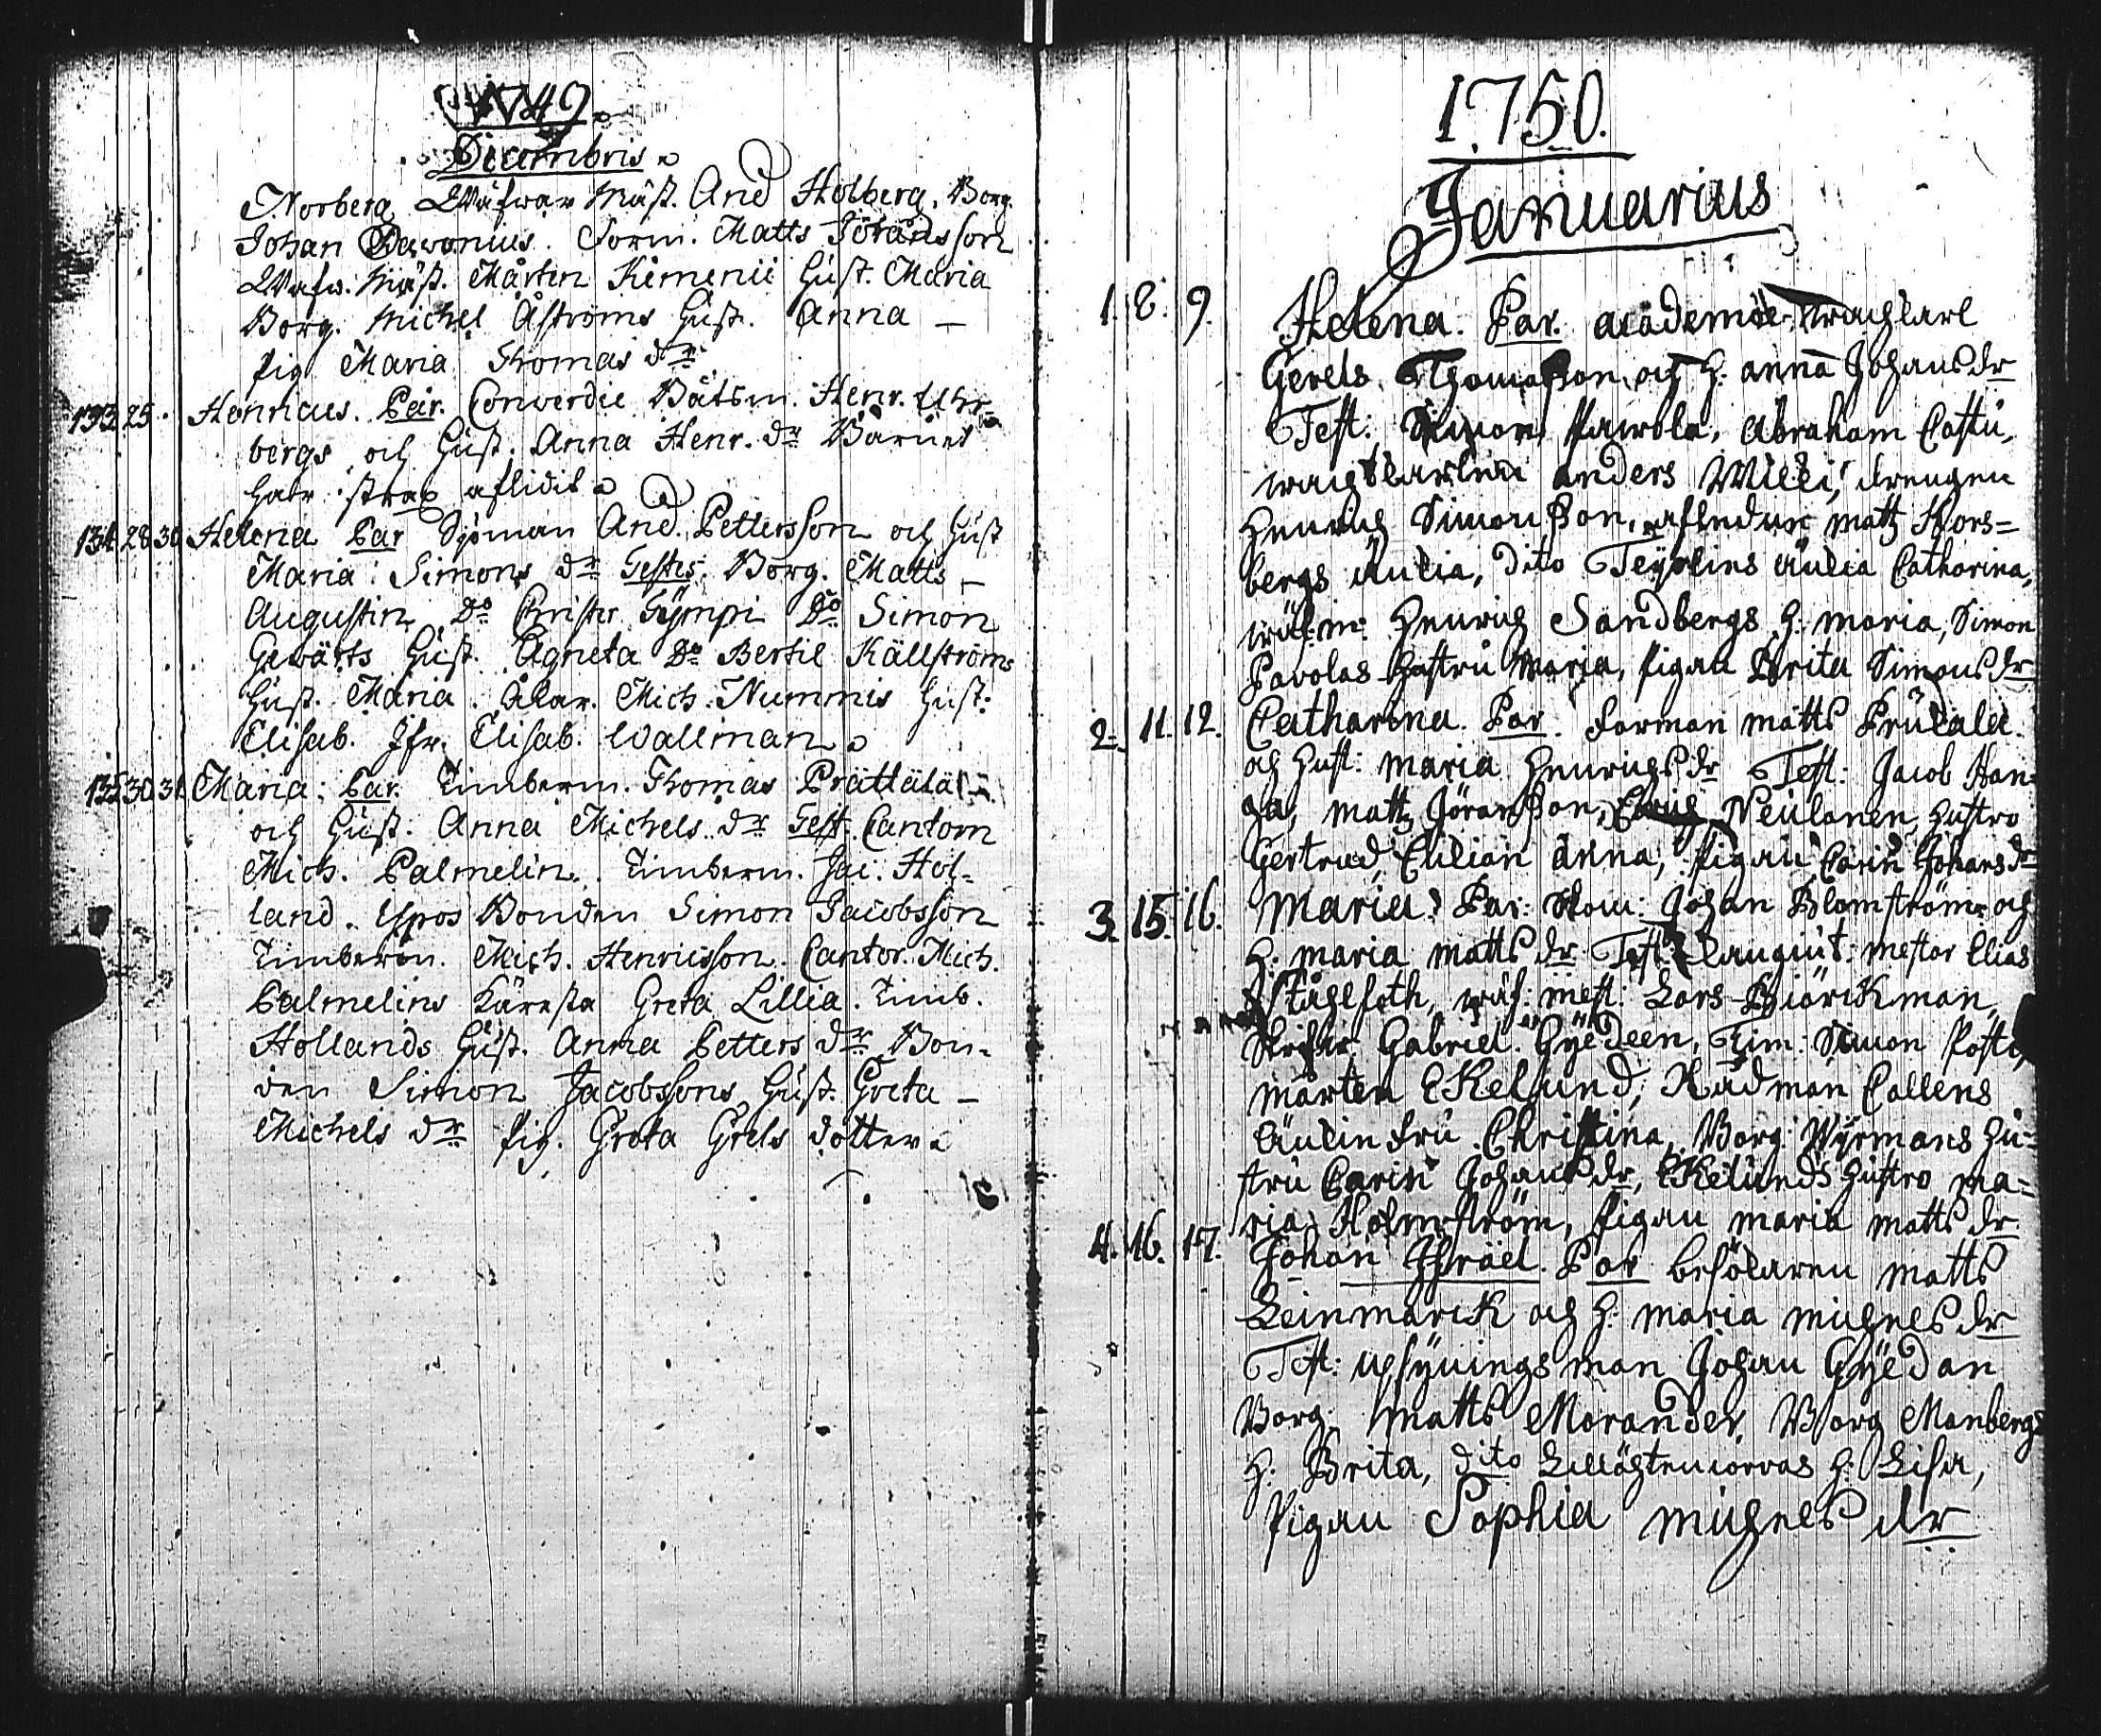 1749.
Decembris
Norberg Wäfwar Mäst. And Holberg. Borg.
Johan Matts Jöransson
Wäfw. Mäst. Mårten Kimenii Hust. Maria
Borg. Michel Åströms Hust. Anna –
pig Maria Thomas dr.
133 25. Henricus. Par. Båtsm. Henr. Uhr-
bergs och Hust. Anna Henr. dr Barnet
har strax aflidit
134 28 30 Helena Par Sjöman And. Pettersson och Hust
Maria Simons dr Testes. Borg. Matts –
Augustin Do Christer Tÿmpi Do Simon
Gewärts Hust. Agneta Do Bertil Källströms
Hust. Maria. Åkar. Mich. Nummis Hust:
Elisab. Jfr. Elisab. Wallman
135 30 31 Maria: Par. Timberm. Thomas Prättälä
och Hust. Anna Michels dr Test. Cantorn
Mich. Palmelin. Timberm. Jac. Hol-
land. Uspos Bonden Simon Jacobsson
Timberm. Mich. Henricsson. Cantor. Mich.
Palmelins Käresta Greta Lillia. Timb.
Hollands Hust. Anna Petters dr Bon-
den Simon Jacobssons Hust. Greta –
Michels dr pig. Greta Grels dotter
1750.
Januarius
1. 8. 9. Helena. Par. academiæ wachtkarl
Gevels Thomasson och H. anna Johans dr
Test: Simon Pawola, Abraham Castu,
wachtkarlen anders Willi, drengen
Henrich Simonsson, afledne matz Kors-
bergs änkia, dito Teÿslins änkia Catharina,
Henrich Sandbergs H. maria, Simon
Pavolas hustru Maria, pigan Brita Simons dr
2. 11. 12. Catharina. Par. Forman matts Prükälä
och Hust: maria Henrichs dr Test: Jacob Han-
ga, matz Jöransson, Neülanen, hustro
Gertrud, änna, pigan Carin Johans dr
3. 15. 16. Maria. Par: Johan Blomström och
H. maria matts dr Test: mestar Elias
Ståhlfoth, wäf: mest: Lars Biörckman,
Gabriel Gÿedeen, Tim: Simon Posti,
mårten Ekelund, Rådman Callens
änkin Fru Christina, Borg: Wÿrmans hu-
stru Carin Johans dr, Ekelunds hustro ma-
ria Holmström, pigan maria matts dr
4. 16. 17. Johan Israël. Par besökaren matts
Leinmarck och H: maria michels dr
Test: upsÿningsman Johan Gÿedan
Borg: matts Morander, Borg Manbergs
H: Brita, dito H: Lisa,
Pigan Sophia michels dr